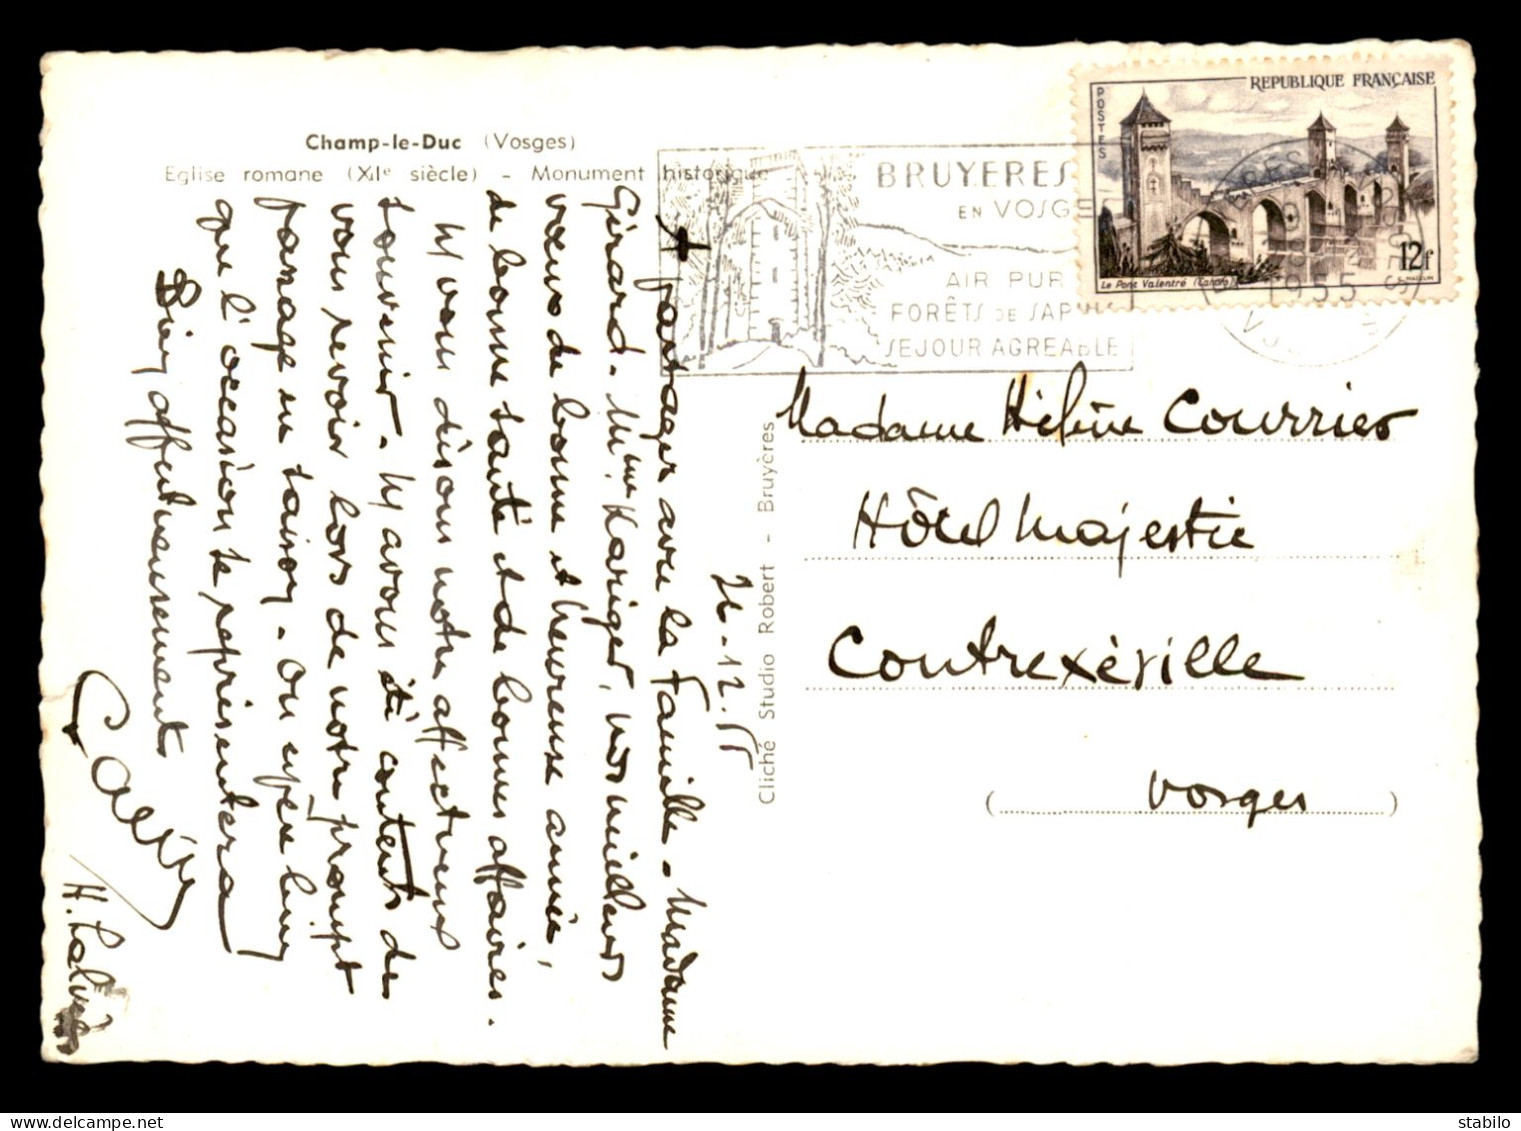 Champ-le-Duc (Vosges)
Eglise romane (XIIe siècle) - Monument historique
BRUYERES
EN VOSGE
AIR PUR
FORÊTS DE SAPINS
SEJOUR AGREABLE
REPUBLIQUE FRANÇAISE
POSTES
12f
Le Pont Valentré (Cahors)
1955
VOSGES
Madame Hélène Courrier
Hôtel Majestic
Contrexéville
(Vosges)
Cliché Studio Robert - Bruyères
26-12-55
A partager avec la famille - Madame
Girard - Mme Kariger, nos meilleurs
vœux de bonne et heureuse année,
de bonne santé et de bonnes affaires.
N/ vous disons notre affectueux
souvenir. N/ avons été contents de
vous revoir lors de notre prompt
passage en saison. On espère bien
que l'occasion se représentera
Bien affectueusement